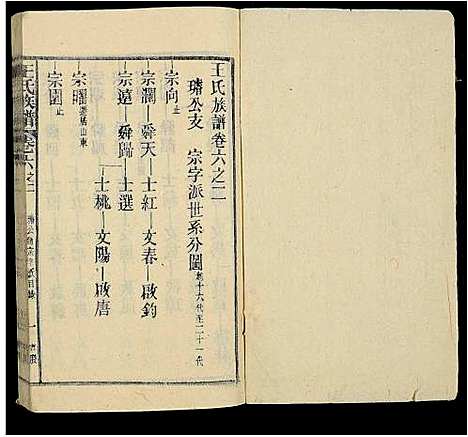 王氏族譜卷六之二
璿公支 宗字派世系分圖起十六代至二十一代
宗向止
宗瀾—舜天—士紅—文春—啟鈞
宗遠—舜歸—士選
士桃—文陽—啟唐
宗曜遷居山東
宗圍止
王氏族譜 卷六之二
一